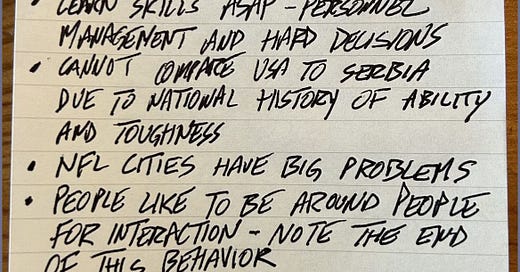 • LEARN SKILLS ASAP - PERSONNEL
MANAGEMENT AND HARD DECISIONS
• CANNOT COMPARE USA TO SERBIA
DUE TO NATIONAL HISTORY OF ABILITY
AND TOUGHNESS
• NFL CITIES HAVE BIG PROBLEMS
• PEOPLE LIKE TO BE AROUND PEOPLE
FOR INTERACTION - NOTE THE END
OF THIS BEHAVIOR